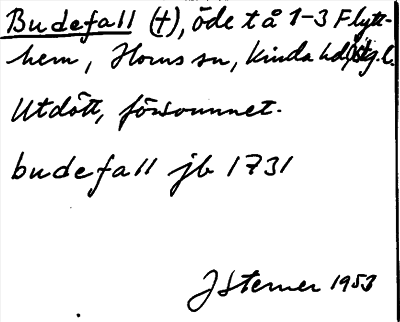 Budefall (†), öde t å 1-3 Flytt-
hem, Horns sn, Kinda hd, Ög. l.
Utdött, försvunnet.
budefall jb 1731
J Sterner 1953